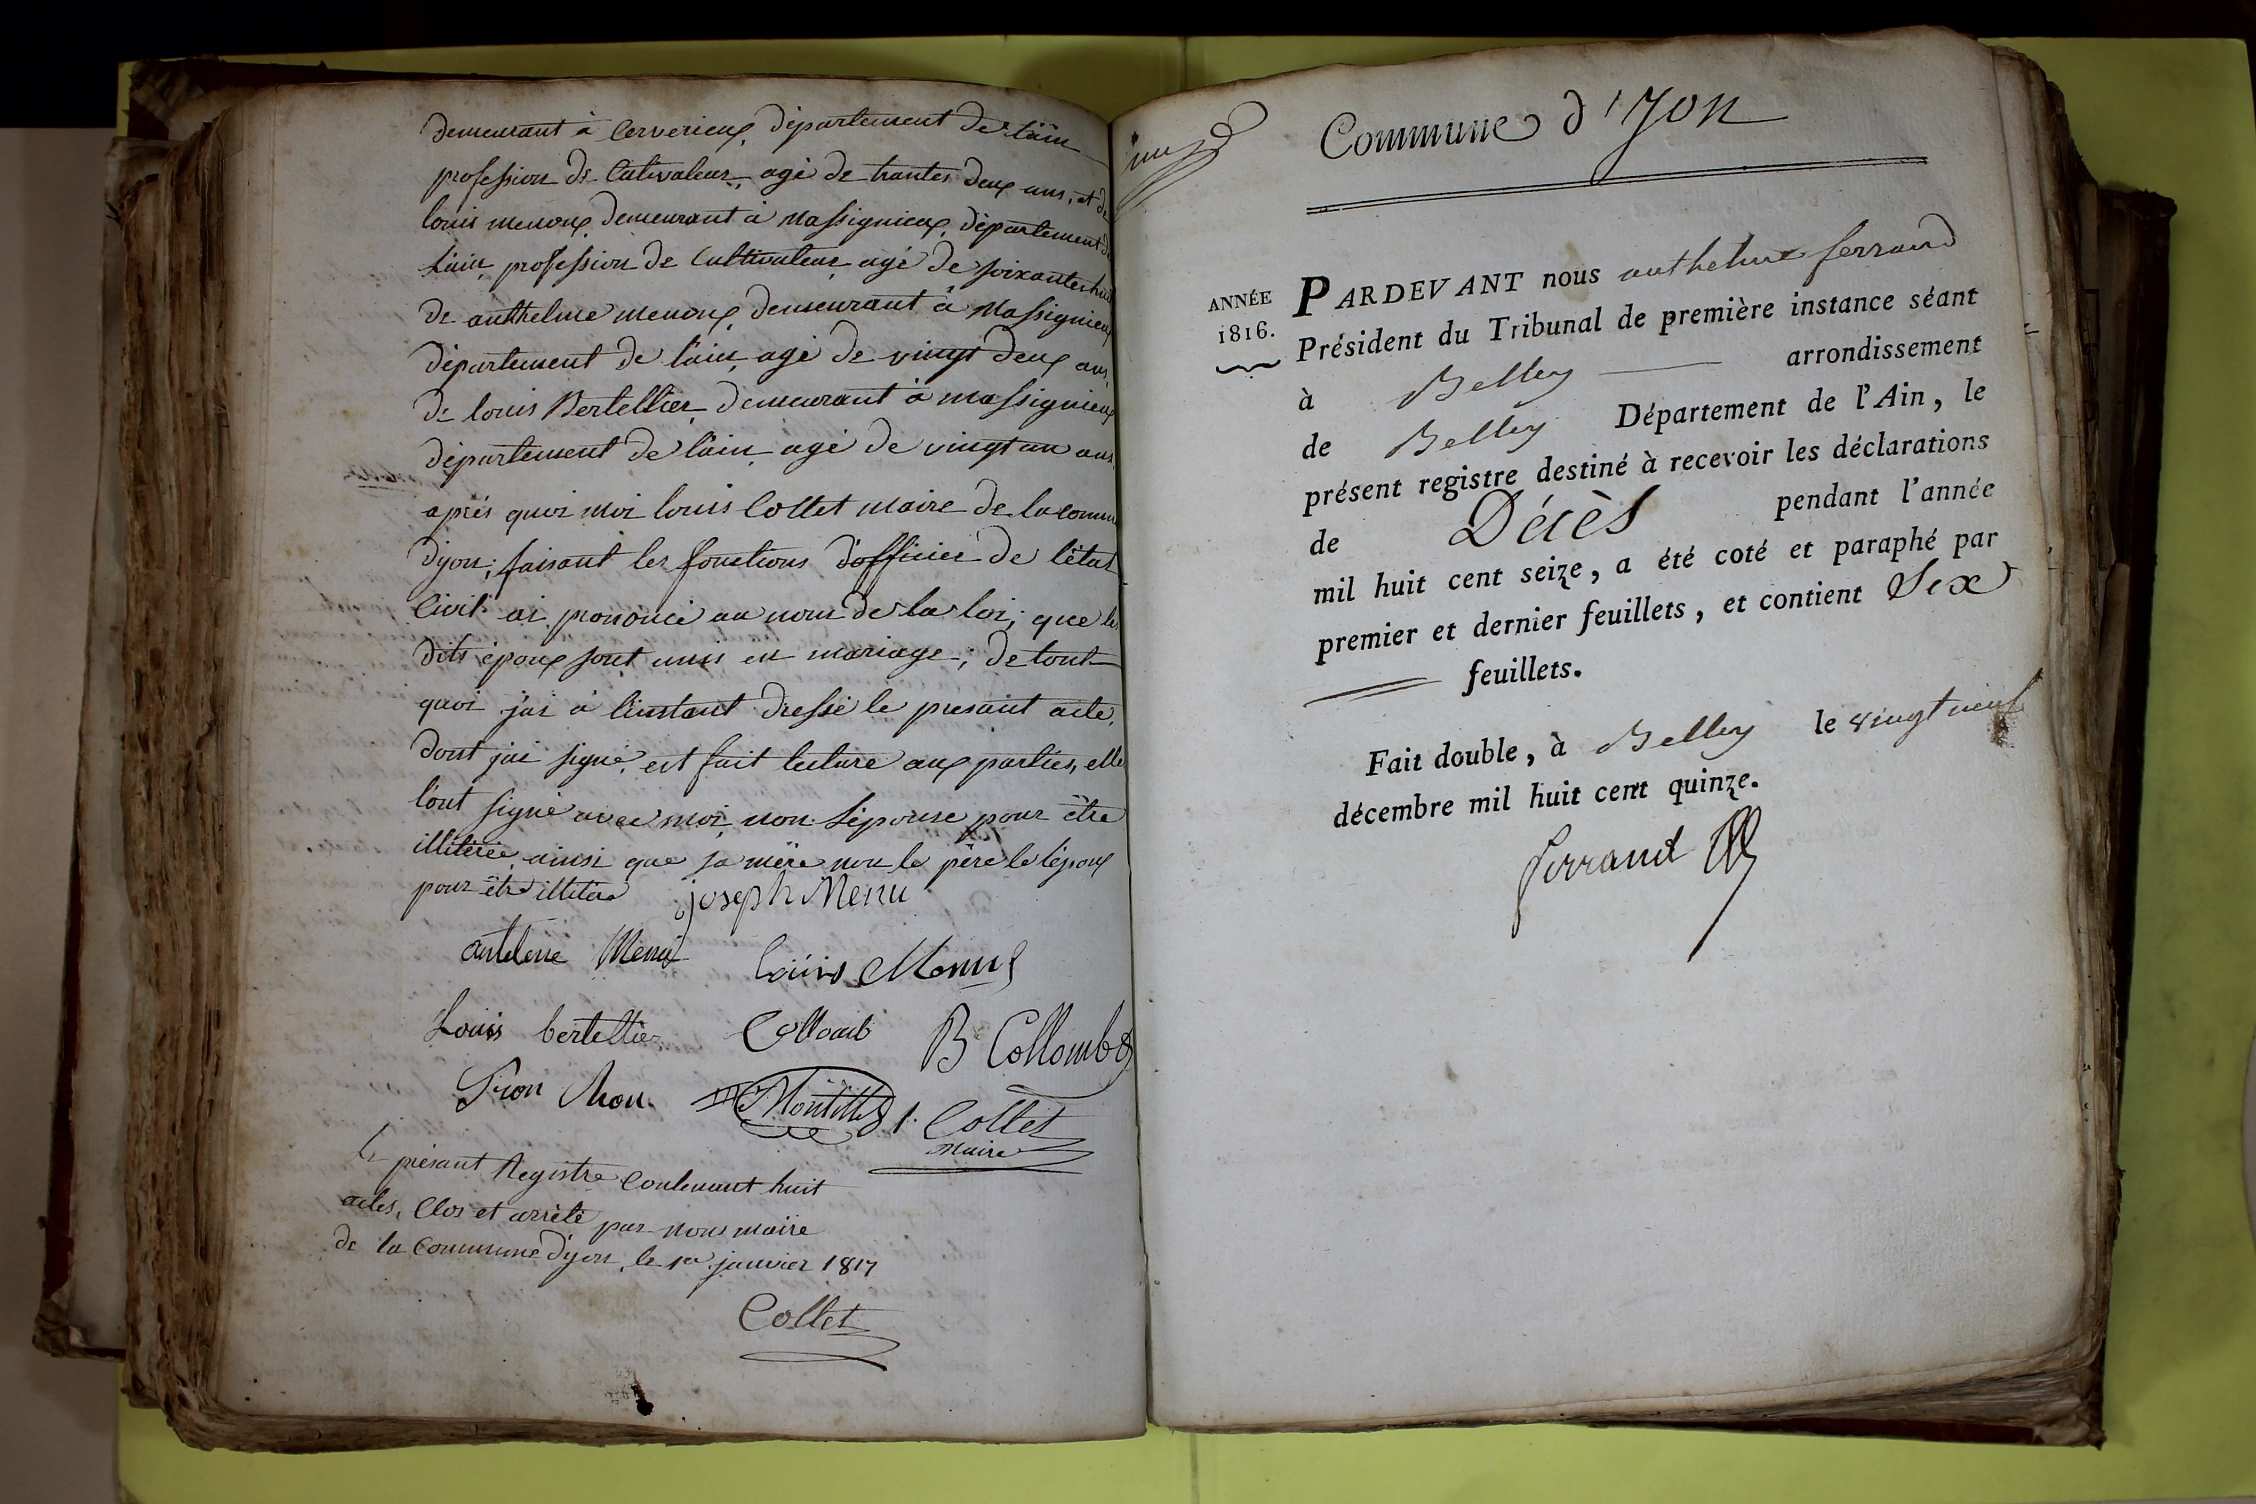 demeurant à Cerverieux, département de l'ain
profession de Cultivateur, agé de trantes deux ans, et de
louis menoux demeurant à Massignieux, département de
l'ain, profession de Cultivateur agé de soixantes huit
de anthelme menoux, demeurant à Massignieux
département de l'ain, agé de vingt deux ans,
de louis Bertellier demeurant à massignieux
département de l'ain agé de vingt un ans
aprés quoi moi louis Collet maire de la comm
d'yon; faisant les fonctions d'officier de l'état
Civil ai prononcé au nom de la loi; que les
dits époux sont unis en mariage; de tout
quoi j'ai à l'instant dressé le presant acte,
dont j'ai signé, est fait lecture aux parties, elles
l'ont signé avec moi non l'épouse pour être
illitérée ainsi que sa mère non le père le l'époux
pour être illitére joseph Menu
antelme Menu Louis Menu
Louis bertellier Collomb B Collomb
Montillet l. Collet
Maire
le présant Registre Contenant huit
actes, Clos et arrêté par nous maire
de la Commune d'yon, le 1er janvier 1817
Collet
un
Commune d'Yon
ANNÉE
1816.
PARDEVANT nous anthelme ferrand
Président du Tribunal de première instance séant
à Belley arrondissement
de Belley Département de l'Ain, le
présent registre destiné à recevoir les déclarations
de Décès pendant l'année
mil huit cent seize, a été coté et paraphé par
premier et dernier feuillets, et contient Six
feuillets.
Fait double, à Belley le vingt neuf
décembre mil huit cent quinze.
ferrand